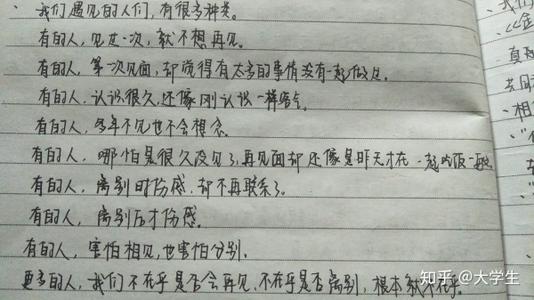 我们遇见的人们，有很多种类。
有的人，见过一次，就不想再见。
有的人，第一次见面，却觉得有太多的事情没有一起做过。
有的人，认识很久，还像刚认识一样
有的人，多年不见也不会想念。
有的人，哪怕是很久没见了，再见面却还像是昨天才在一起吃饭一
有的人，离别时伤感，却不再联系了。
有的人，离别后才伤感。
有的人，害怕相见，也害怕分别。
更多的人，我们不在乎是否会再见，不在乎是否离别，根本就不在乎。
知乎 @大学生